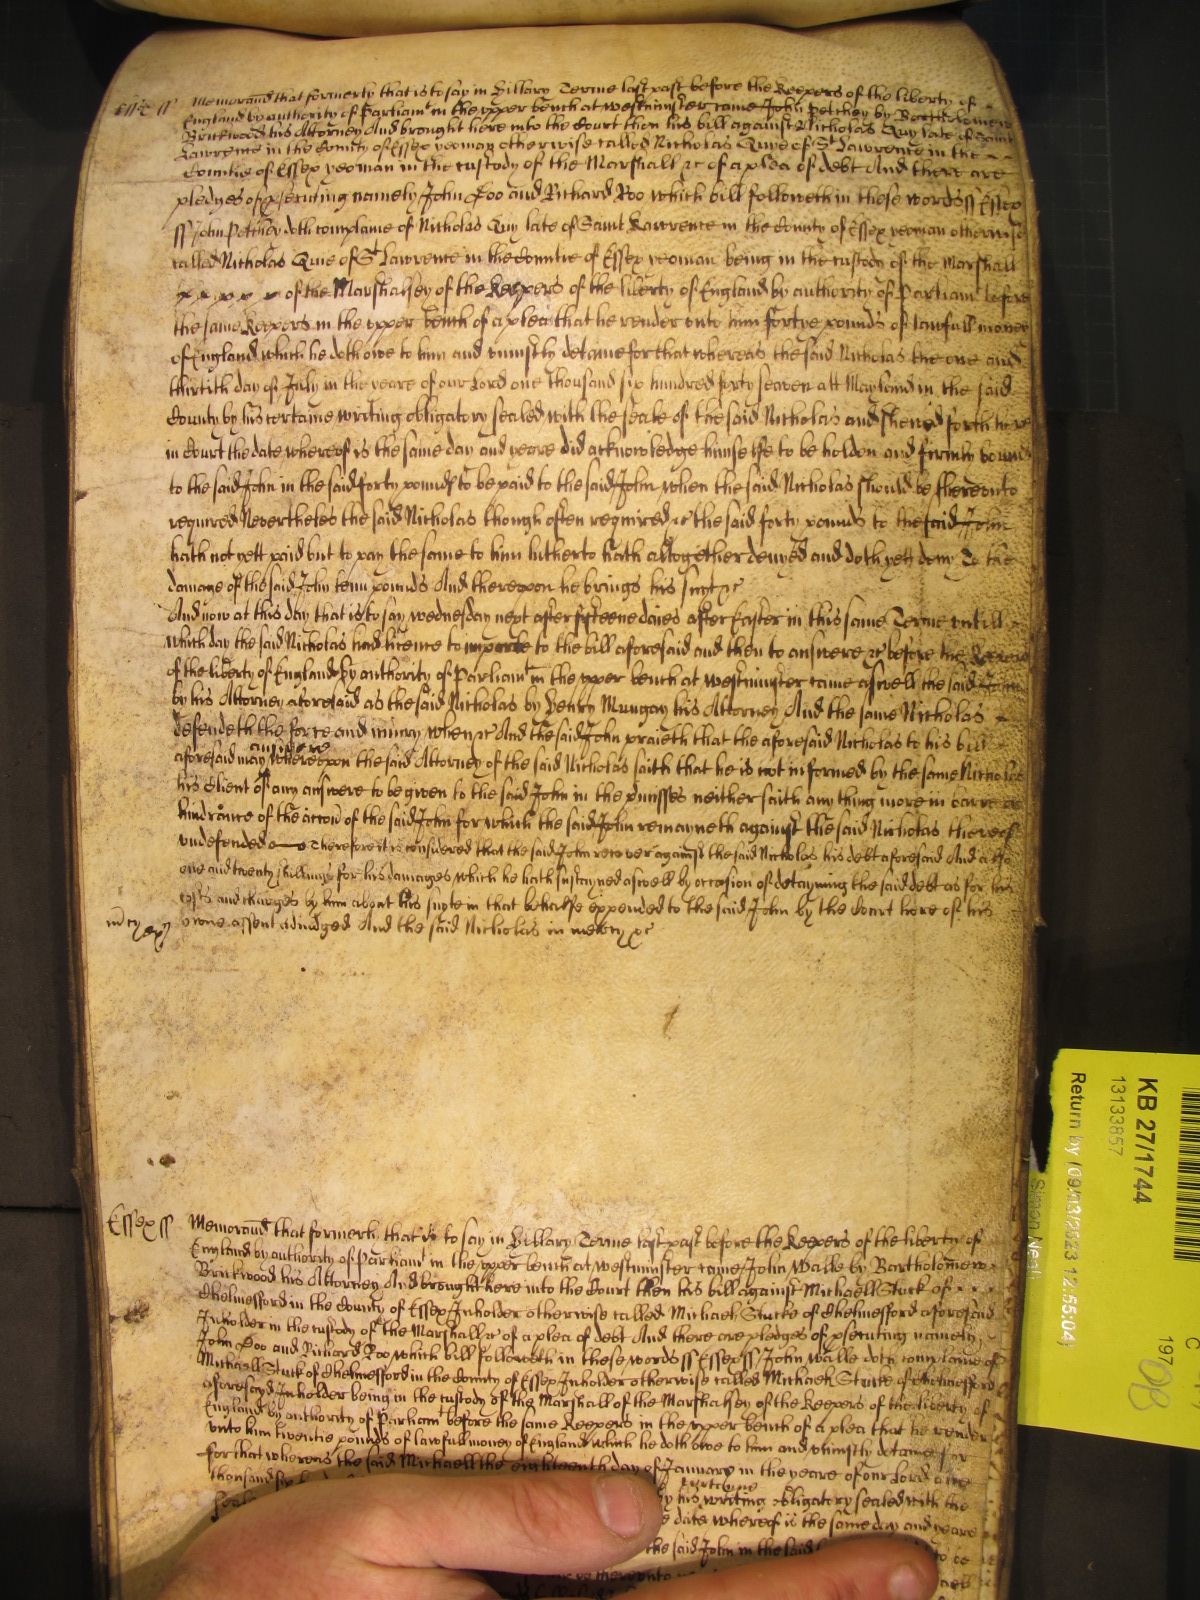 Essex ss Memorand that formerly that is to say in Hillary Terme last past before the Keepers of the liberty of
England by authority of Parliamt in the upper bench at Westminster came John Petchey by Bartholomew
Brinkwood his Attorney And brought here into the Court then his bill against Nicholas Quy late of Saint
Lawrence in the County of Essex yeoman otherwise called Nicholas Quie of St Lawrence in the
Countie of Essex yeoman in the custody of the Marshall &c of a plea of debt And there are
pledges of psecuting namely John Doo and Richard Roo which bill followeth in these words ss Essex
ss John Petchey doth complaine of Nicholas Quy late of Saint Lawrence in the County of Essex yeoman otherwise
called Nicholas Quie of St Lawrence in the Countie of Essex yeoman being in the custody of the Marshall
of the Marshalsey of the Keepers of the liberty of England by authority of Parliamt before
the same Keepers in the upper bench of a plea that he render unto him fortye pounds of lawfull money
of England which he doth owe to him and uniustly detaine for that whereas the said Nicholas the one and
thirtith day of July in the yeare of our Lord one thousand six hundred forty seaven att Mayland in the said
County by his certaine writing obligatory sealed with the seale of the said Nicholas and shewed forth here
in Court the date whereof is the same day and yeare did acknowledge himselfe to be holden and firmly bound
to the said John in the said forty pounds to be paid to the said John when the said Nicholas should be thereunto
required Nevertheles the said Nicholas though often required &c the said forty pounds to the said John
hath not yett paid but to pay the same to him hitherto hath altogether denyed and doth yett deny To the
damage of the said John tenn pounds And thereupon he brings his suyt &c
And now at this day that is to say wednesday next after fifteene daies after Easter in this same Terme untill
which day the said Nicholas had licence to imparle to the bill aforesaid and then to answere &c before the Keepers
of the liberty of England by authority of Parliamt in the upper bench at Westminster came aswell the said John
by his Attorney aforesaid as the said Nicholas by Henry Mungay his Attorney And the same Nicholas
defendeth the force and iniury when &c And the said John praieth that the aforesaid Nicholas to his bill
aforesaid may answere whereupon the said Attorney of the said Nicholas saith that he is not informed by the same Nicholas
his Client of any answere to be given to the said John in the pmisses neither saith any thing more in barre or
hindrance of the accon of the said John for which the said John remayneth against the said Nicholas thereof
undefended Therefore it is considered that the said John recover against the said Nicholas his debt aforesaid And alsoe
one and twenty shillings for his damages which he hath sustayned aswell by occasion of detayning the said debt as for his
costs and charges by him about his suyte in that behalfe expended to the said John by the Court here of his
owne assent adiudged And the said Nicholas in mercy &c
Essex ss Memorand that formerly that is to say in Hillary Terme last past before the Keepers of the liberty of
England by authority of Parliamt in the upper bench at Westminster came John Walle by Bartholomew
Brinkwood his Attorney And brought here into the Court then his bill against Michaell Stuck of
Chelmesford in the County of Essex Inholder otherwise called Michaell Stucke of Chelmesford aforesaid
Inholder in the custody of the Marshall &c of a plea of debt And there are pledges of psecuting namely
John Doo and Richard Roo which bill followeth in these words ss Essex ss John Walle doth complaine of
Michaell Stuck of Chelmesford in the County of Essex Inholder otherwise called Michaell Stucke of Chelmesford
aforesayd Inholder being in the custody of the Marshall of the Marshalsey of the Keepers of the liberty of
England by authority of Parliamt before the same Keepers in the upper bench of a plea that he render
unto him twentie pounds of lawfull money of England which he doth owe to him and uniustly detaine for
for that whereas the said Michaell the eighteenth day of January in the yeare of our Lord one
thousand six by his certayne writing obligatory sealed with the
seale date whereof is the same day and yeare
the said John in the said
KB 27/1744
13133857
Return by (09/03/2023 12:55:04)
Simon Neal
C
197